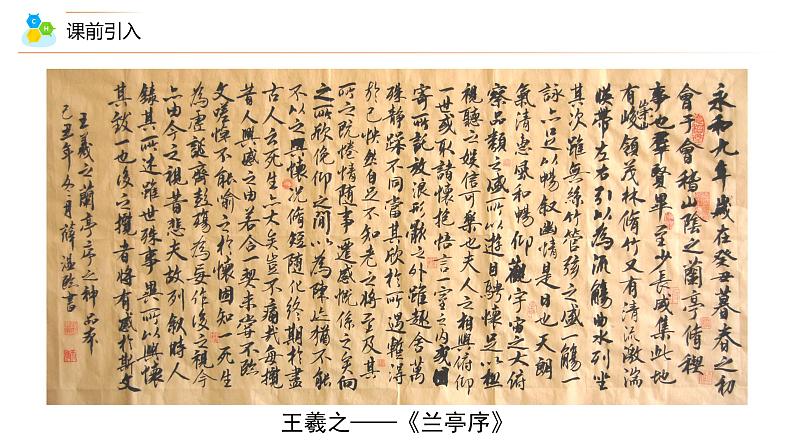 课前引入
永和九年歲在癸丑暮春之初
會于會稽山陰之蘭亭脩禊
事也群賢畢至少長咸集此地
有崇山峻領茂林脩竹又有清流激湍
暎帶左右引以為流觴曲水列坐
其次雖無絲竹管弦之盛一觴一
詠亦足以暢叙幽情是日也天朗
氣清惠風和暢仰觀宇宙之大俯
察品類之盛所以遊目騁懷足以極
視聽之娛信可樂也夫人之相與俯仰
一世或取諸懷抱悟言一室之内或因
寄所託放浪形骸之外雖趣舍萬
殊靜躁不同當其欣於所遇暫得
於己怏然自足不知老之將至及其
所之既惓情隨事遷感慨係之矣向
之所欣俛仰之間以為陳迹猶不
以之興懷況脩短隨化終期於盡
古人云死生亦大矣豈不痛哉每攬
昔人興感之由若合一契未嘗不臨
文嗟悼不能喻之於懷固知一死生
為虛誕齊彭殤為妄作後之視今
亦由今之視昔悲夫故列敘時人
錄其所述雖世殊事異所以興懷
其致一也後之攬者將有感於斯文
王羲之蘭亭序之神品本
己丑年冬月薛溫書
王羲之——《兰亭序》